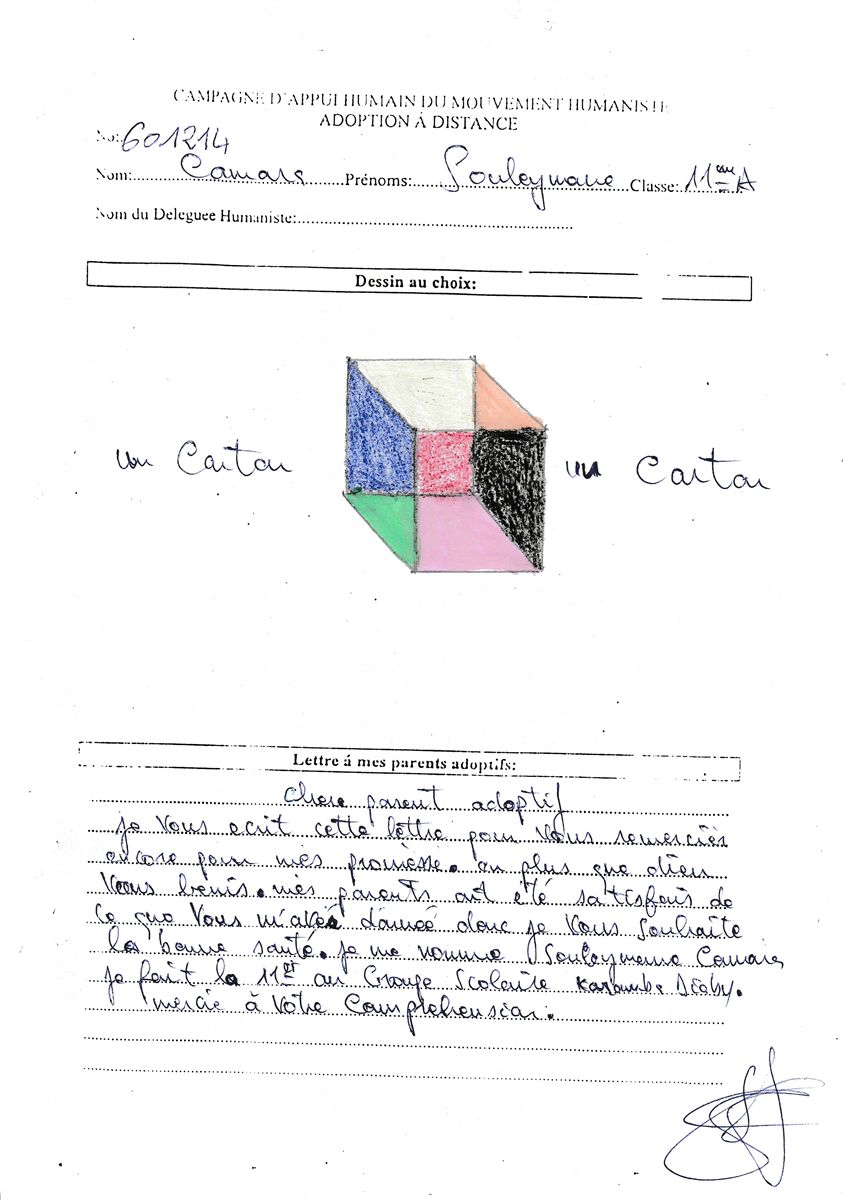 CAMPAGNE D'APPUI HUMAIN DU MOUVEMENT HUMANISTE
ADOPTION À DISTANCE
No: 601214
Nom: Camara Prénoms: Souleymane Classe: 11ème A
Nom du Deleguee Humaniste:
Dessin au choix:
un Carton un Carton
Lettre á mes parents adoptifs:
Chere parent adoptif
je Vous ecrit cette lettre pour Vous remerciér
encore pour mes promèsse. an plus que dieu
Vous benis. mes parents ont été satisfais de
Ce que Vous m'avéé donneé donc je Vous Souhaite
la bonne santé. je me nomme Souleymane Camara
je fait la 11et au Groupe Scolaire Karamba Diaby.
mercie à Votre Comprehension.